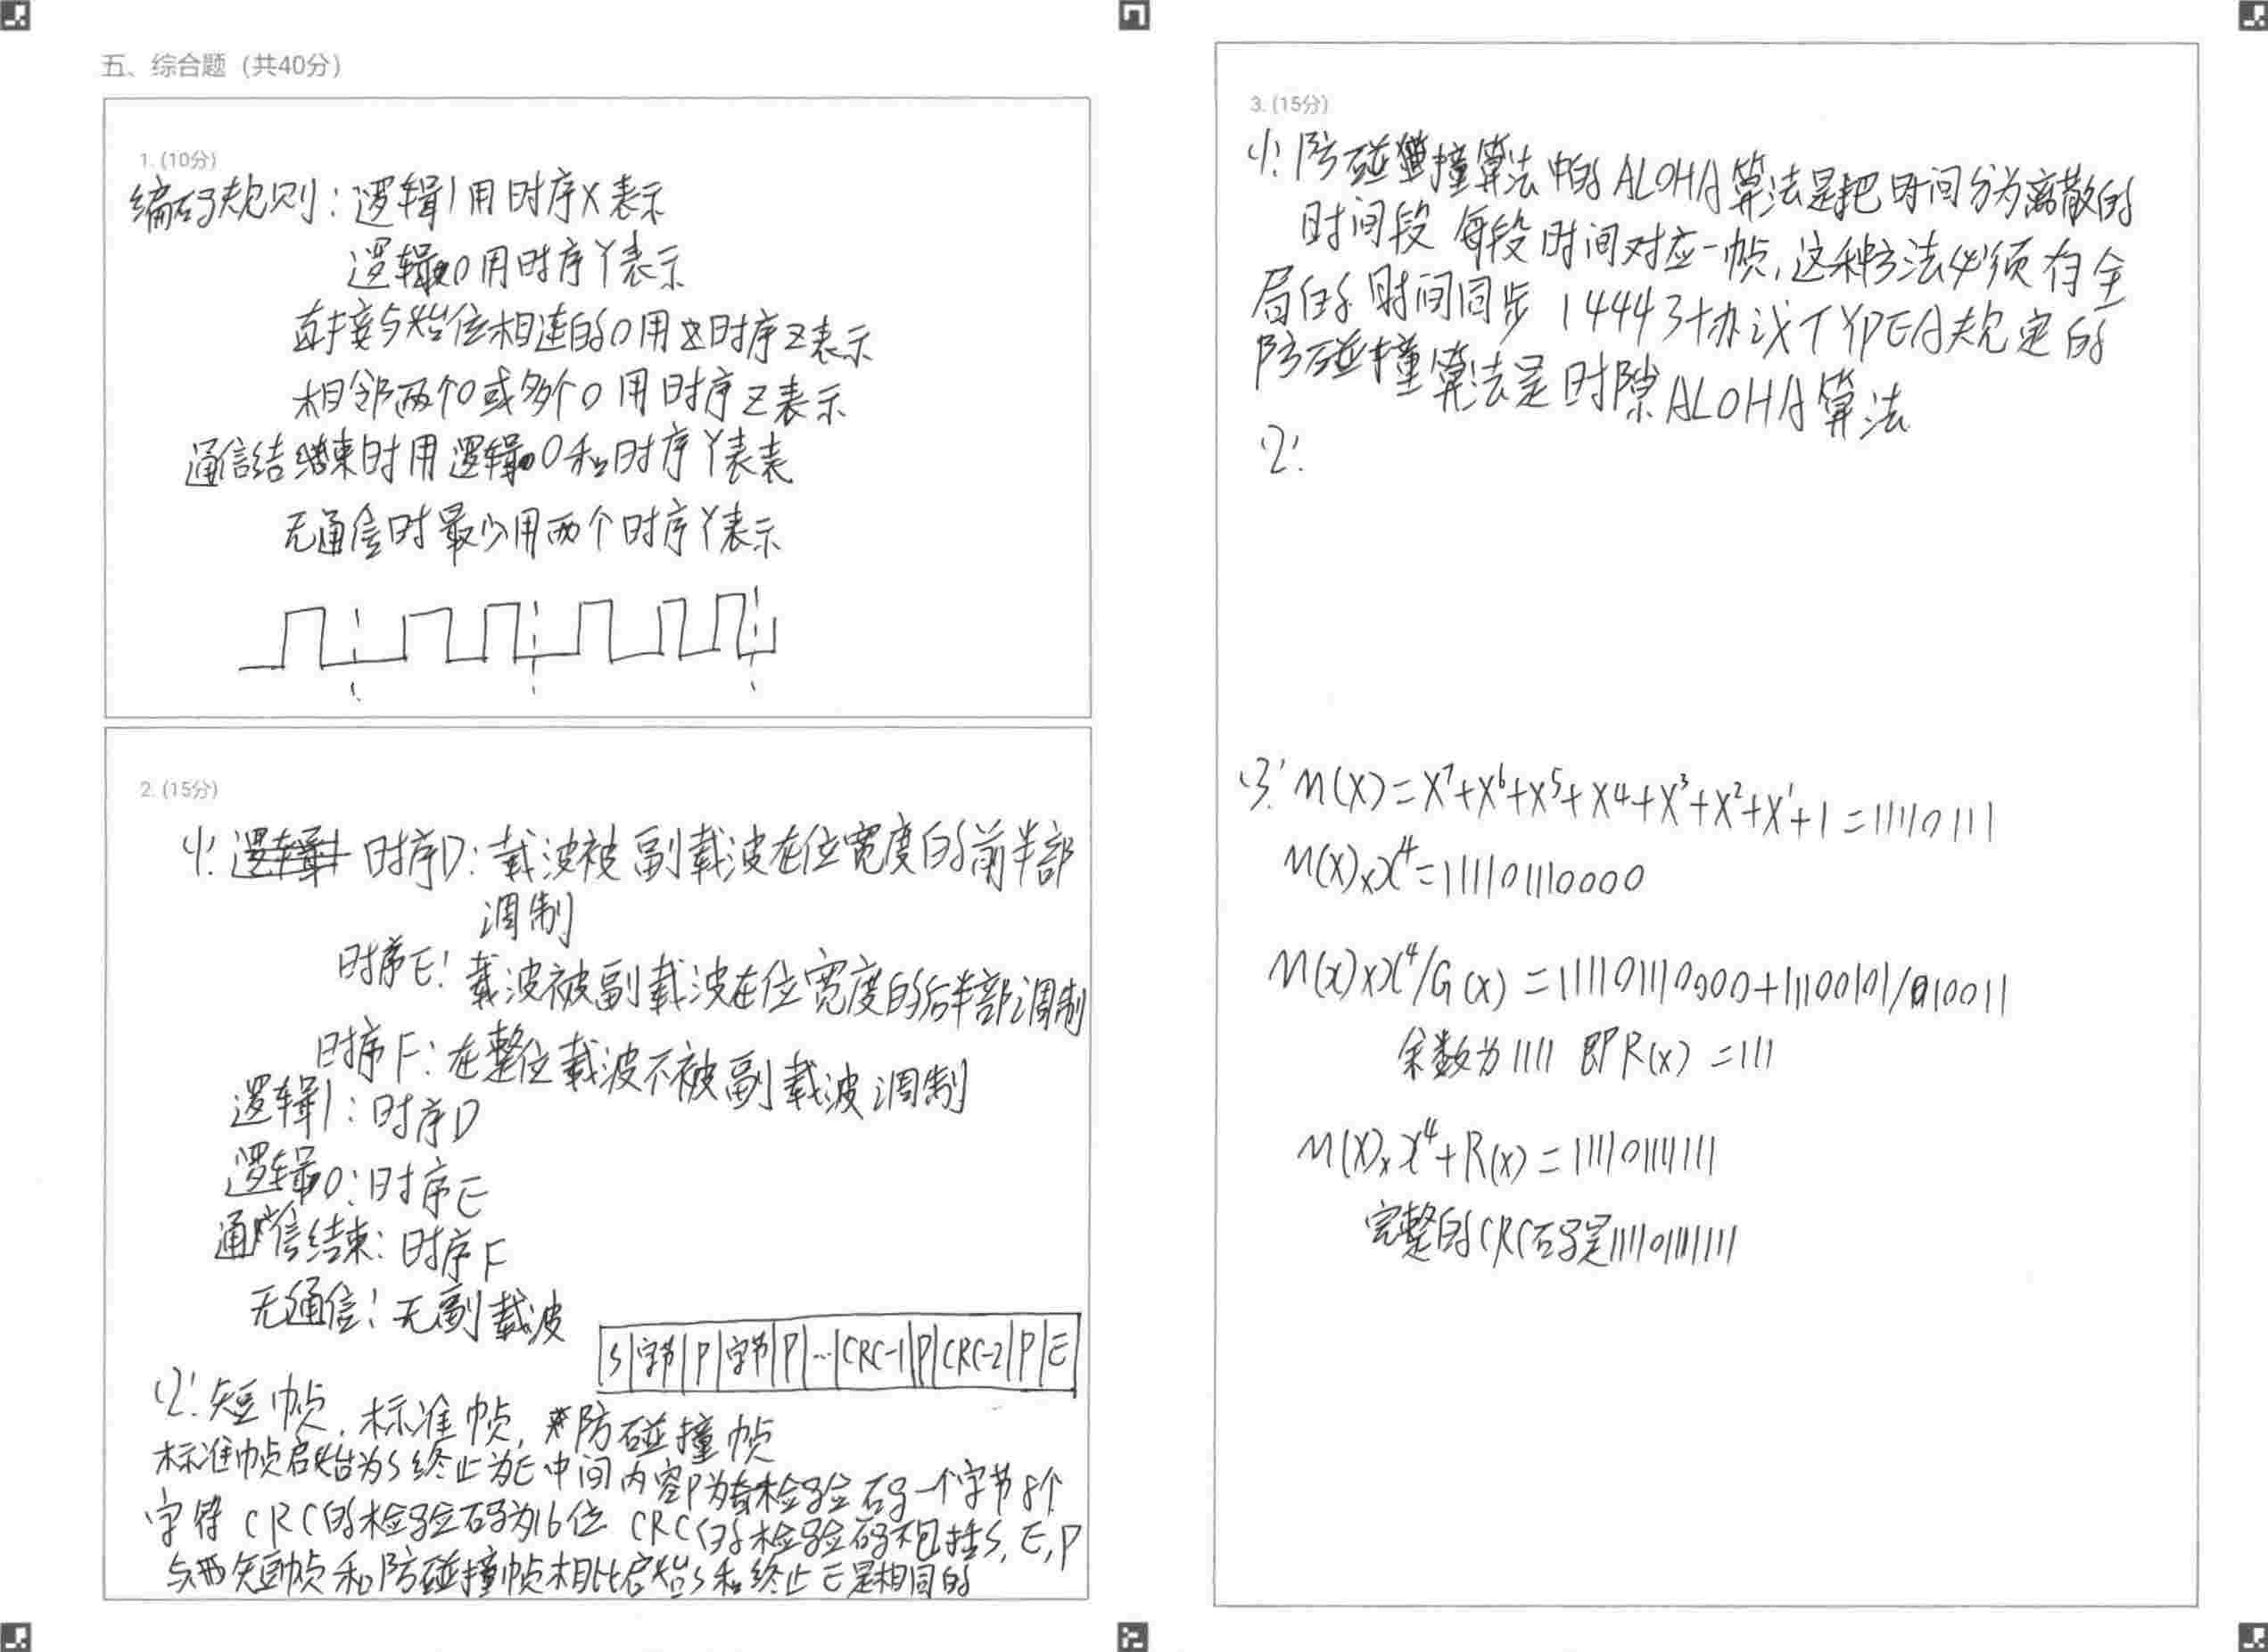 五、综合题（共40分）
1. (10分)
编码规则：逻辑1用时序X表示
逻辑0用时序Y表示
直接与始位相连的0用时序Z表示
相邻两个0或多个0用时序Z表示
通信结束时用逻辑0和时序Y表表
无通信时最少用两个时序Y表示
2. (15分)
(1). 时序D：载波被副载波在位宽度的前半部
调制
时序E：载波被副载波在位宽度的后半部调制
时序F：在整位载波不被副载波调制
逻辑1：时序D
逻辑0：时序E
通信结束：时序F
无通信：无副载波
S|字节|P|字节|P|…|CRC-1|P|CRC-2|P|E
(2). 短帧，标准帧，防碰撞帧
标准帧启始为S终止为E中间内容P为奇检验码一个字节8个
字符 CRC的检验码为16位 CRC的检验码不包括S，E，P
与短帧和防碰撞帧相比启始S和终止E是相同的
3. (15分)
(1). 防碰撞算法中的ALOHA算法是把时间分为离散的
时间段 每段时间对应一帧，这种方法必须有全
局的时间同步 14443协议TYPEA规定的
防碰撞算法是时隙ALOHA算法
(2).
(3). M(X)=X⁷+X⁶+X⁵+X⁴+X³+X²+X¹+1=11110111
M(X)×X⁴=111101110000
M(X)×X⁴/G(X)=111101110000+11100101/10011
余数为1111 即R(X)=111
M(X)×X⁴+R(X)=11110111111
完整的CRC码是111101111111